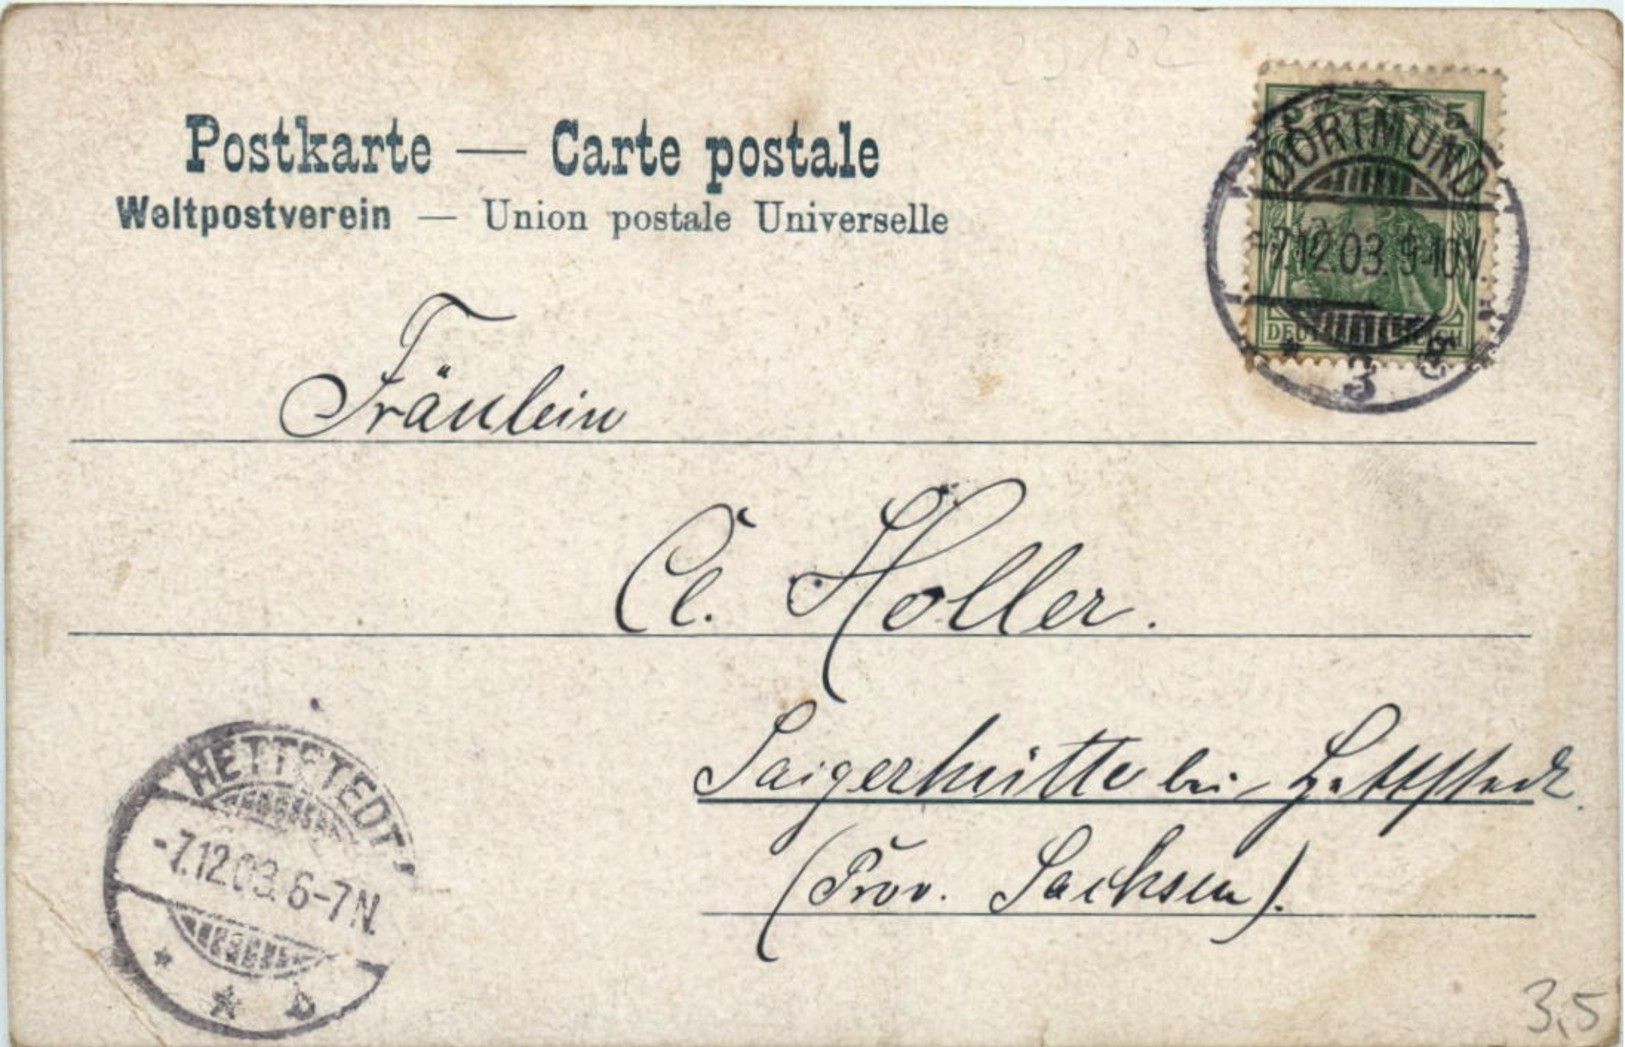 23102
Postkarte — Carte postale
Weltpostverein — Union postale Universelle
5
DORTMUND
-7.12.03. 9-10V.
* 3 g
Fräulein
Cl. Holler.
Saigerhütte bei Hettstedt.
(Prov. Sachsen).
HETTSTEDT
-7.12.03. 6-7N.
* * b
3,5